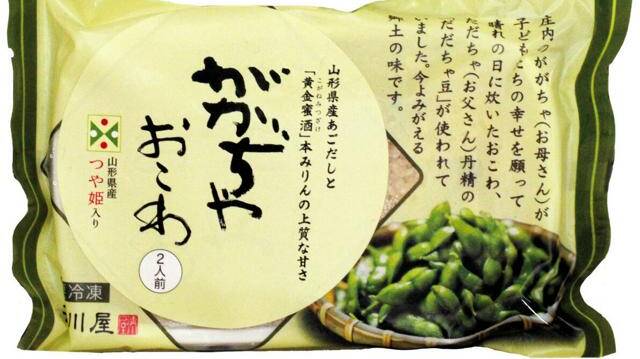 庄内のががちゃ(お母さん)が
子どもたちの幸せを願って
晴れの日に炊いたおこわ、
だだちゃ(お父さん)丹精の
だだちゃ豆"が使われて
いました。今よみがえる
郷土の味です。
山形県産あごだしと
「黄金蜜酒」本みりんの上質な甘さ
こがねみつざけ
ががちゃ
おこわ
山形県産
つや姫入り
2人前
冷凍
川屋